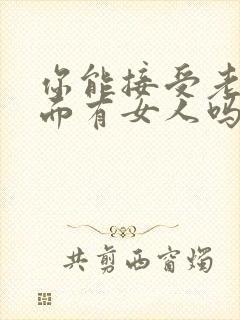 你能接受老
而有女人吗
共剪西窗烛